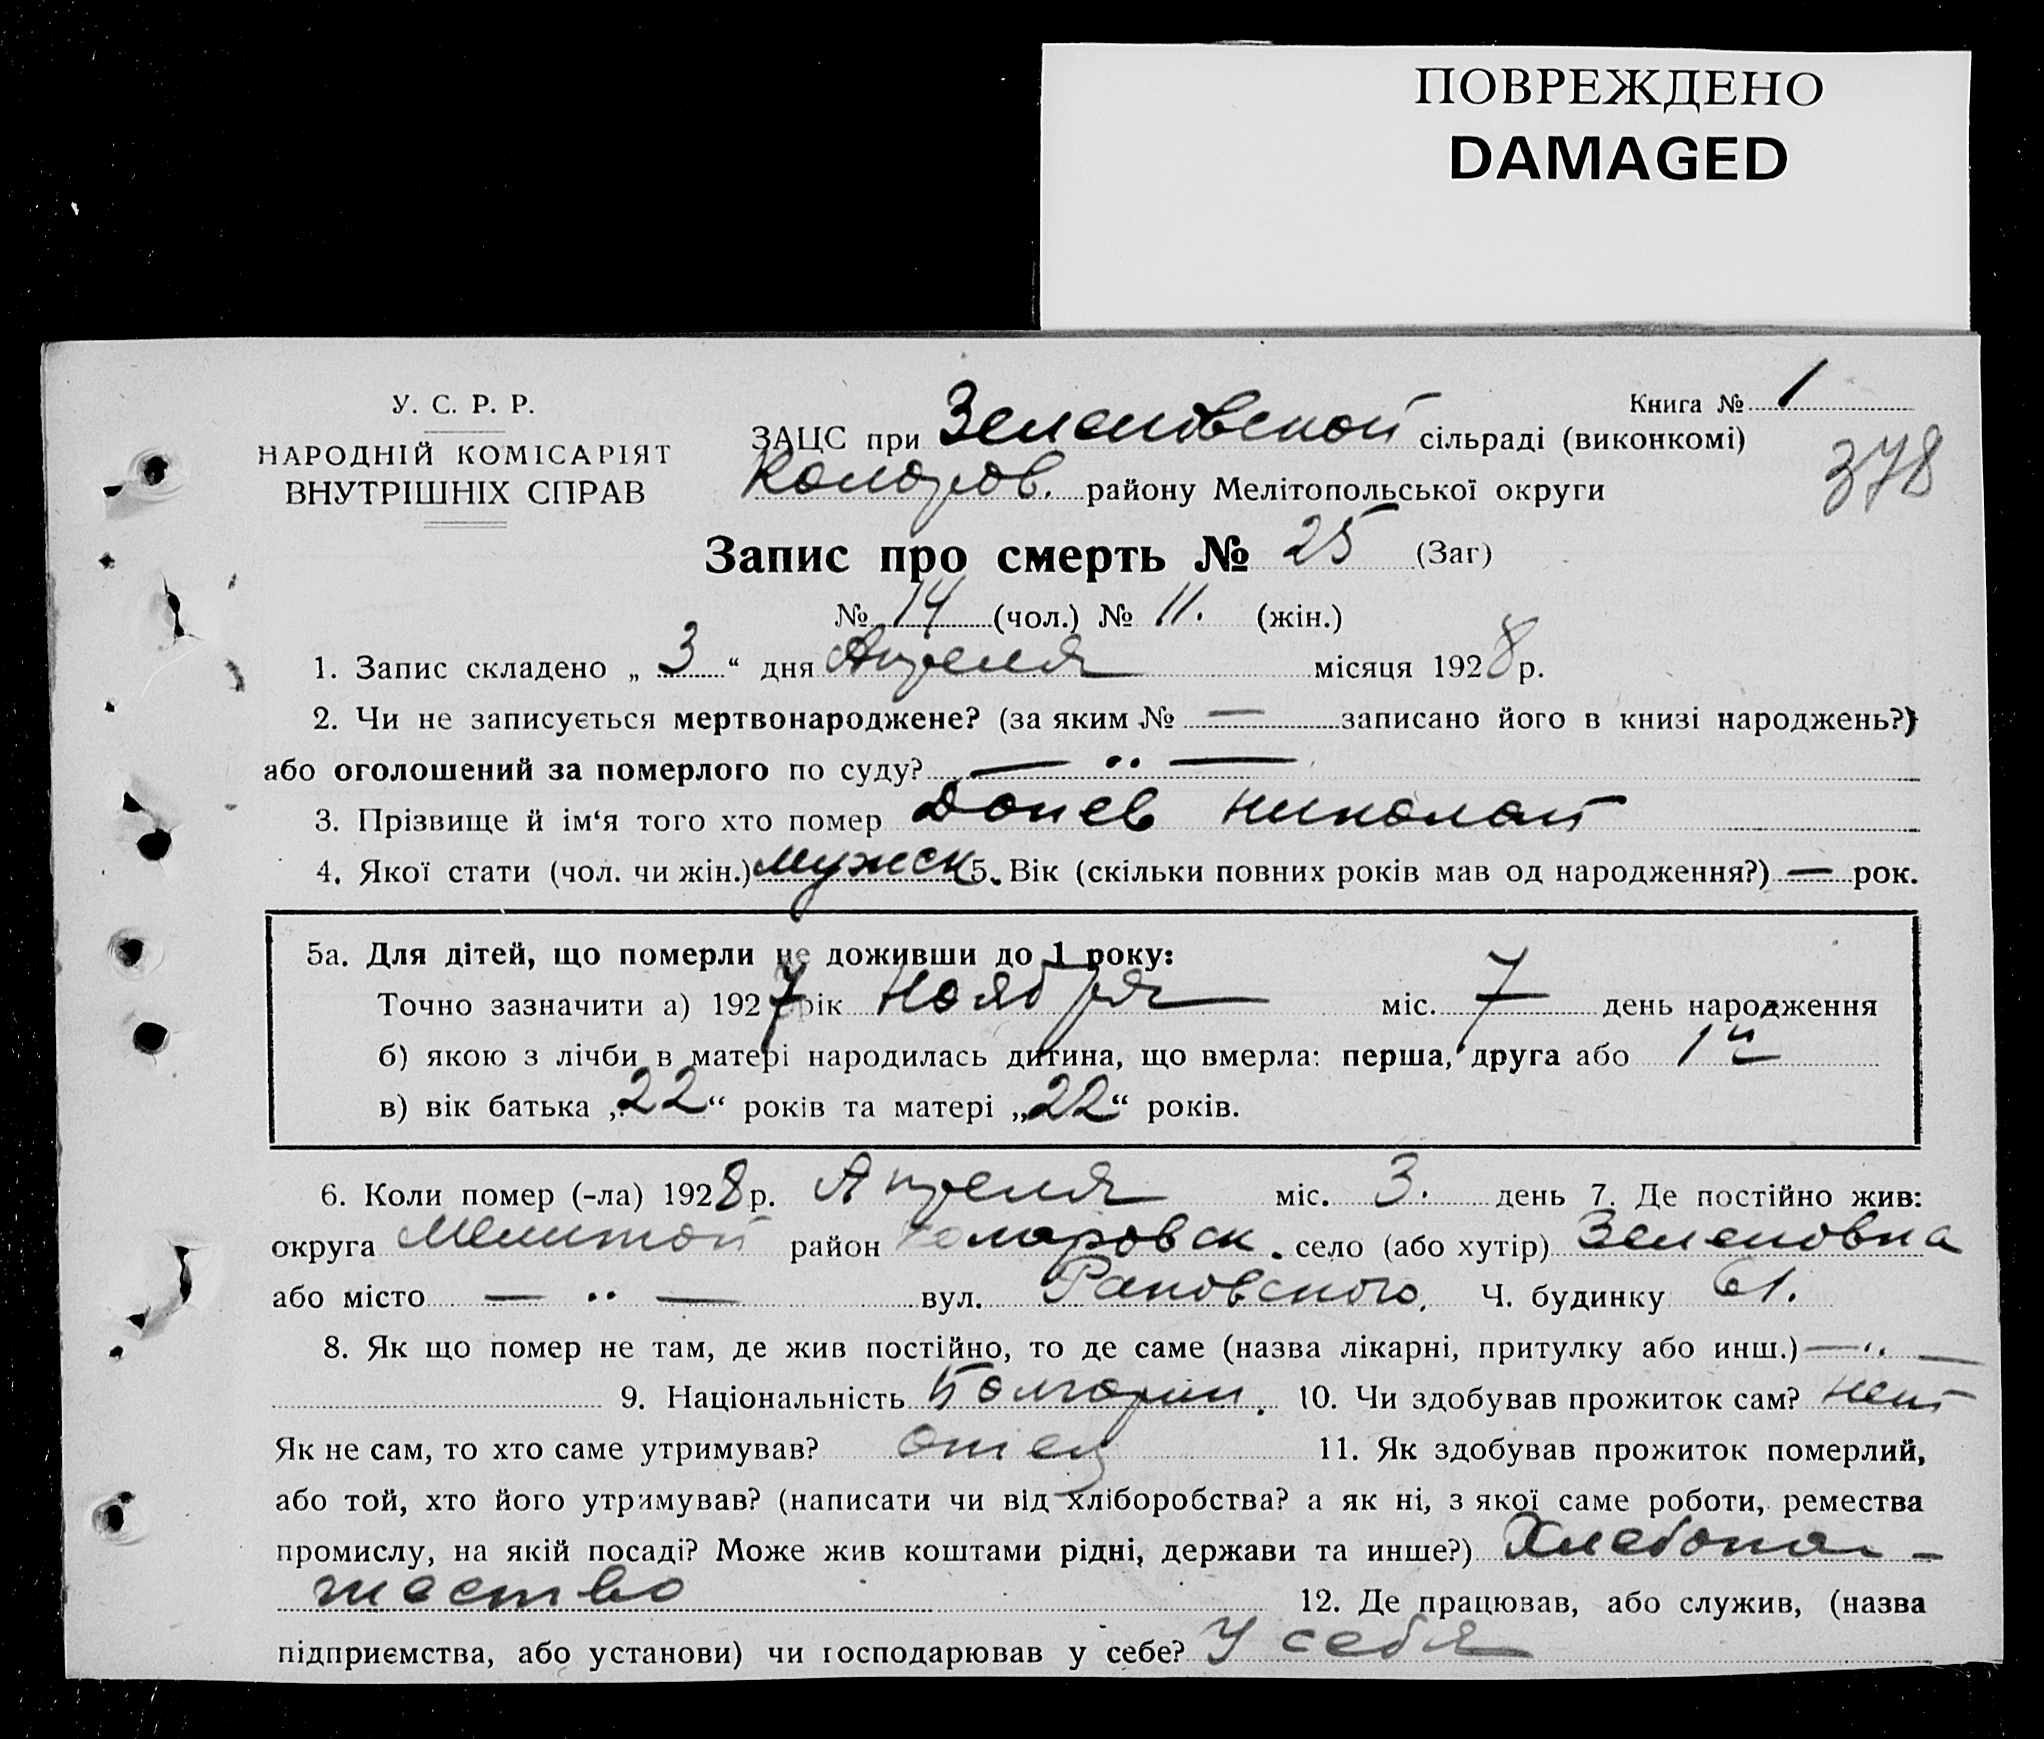 ПОВРЕЖДЕНО
DAMAGED
У. С. Р. Р.
НАРОДНІЙ КОМІСАРІЯТ
ВНУТРІШНІХ СПРАВ
Книга № 1
ЗАЦС при Зеленовской сільраді (виконкомі)
Коларов. району Мелітопольської округи
378
Запис про смерть № 25 (Заг)
№ 14 (чол.) № 11. (жін.)
1. Запис складено „ 3 “ дня Апреля місяця 1928 р.
2. Чи не записується мертвонароджене? (за яким № — записано його в книзі народжень?)
або оголошений за померлого по суду? — ·· —
3. Прізвище й ім‘я того хто помер Донев Николай
4. Якої стати (чол. чи жін.) мужск 5. Вік (скільки повних років мав од народження?) — рок.
5а. Для дітей, що померли не доживши до 1 року:
Точно зазначити а) 1927 рік Ноября міс. 7 день народження
б) якою з лічби в матері народилась дитина, що вмерла: перша, друга або 1й
в) вік батька „22“ років та матері „22“ років.
6. Коли помер (-ла) 1928 р. Апреля міс. 3. день 7. Де постійно жив:
округа Мелитоп район Коларовск. село (або хутір) Зеленовка
або місто — ·· — вул. Раковского. Ч. будинку 61.
8. Як що помер не там, де жив постійно, то де саме (назва лікарні, притулку або инш.) — ·· —
9. Національність Болгарин. 10. Чи здобував прожиток сам? нет
Як не сам, то хто саме утримував? отец 11. Як здобував прожиток померлий,
або той, хто його утримував? (написати чи від хліборобства? а як ні, з якої саме роботи, ремества
промислу, на якій посаді? Може жив коштами рідні, держави та инше?) Хлебопа-
шество 12. Де працював, або служив, (назва
підприємства, або установи) чи господарював у себе? У себя